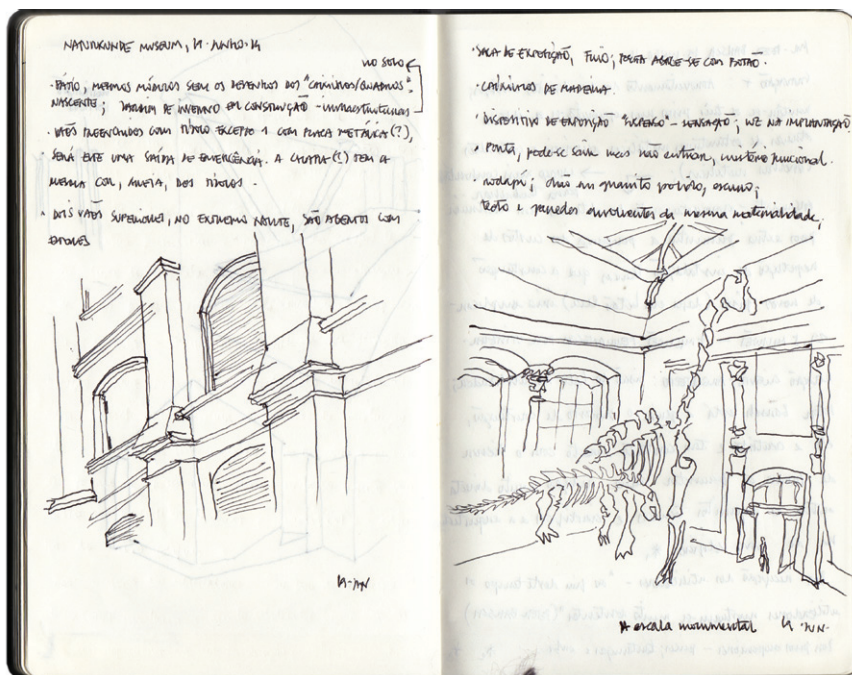 NATURKUNDE MUSEUM, 19·JUNHO·14
NO SOLO
· PÁTIO, MESMOS MÓDULOS SEM OS DESENHOS DOS "CAMINHOS/QUADROS"·
NASCENTE; JARDIM DE INVERNO EM CONSTRUÇÃO - INFRAESTRUTURAS
· VÃOS PREENCHIDOS COM TIJOLO EXCEPTO 1 COM PLACA METÁLICA(?),
SERÁ ESTE UMA SAÍDA DE EMERGÊNCIA. A CHAPA(?) TEM A
MESMA COR, AREIA, DOS TIJOLOS.
· DOIS VÃOS SUPERIORES, NO EXTREMO NORTE, SÃO ABERTOS COM
19·JUN
· SALA DE EXPOSIÇÃO, FRIO; PORTA ABRE-SE COM BOTÃO.
· CAIXILHOS DE MADEIRA.
· DISPOSITIVO DE EXPOSIÇÃO "IMERSO" - SENSAÇÃO; LUZ NA IMPLANTAÇÃO
· Porta, pode-se sair mas não entrar, mistério funcional.
· rodapé; chão em granito polido, escuro;
Teto e paredes envolventes da mesma materialidade;
A escala monumental 19·JUN·